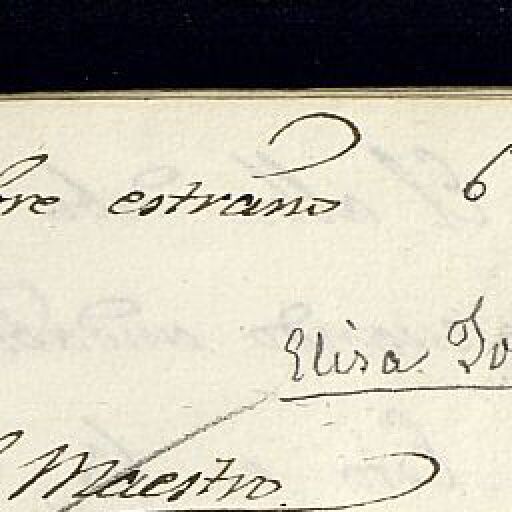 estrano 6
Elisa
Maestro